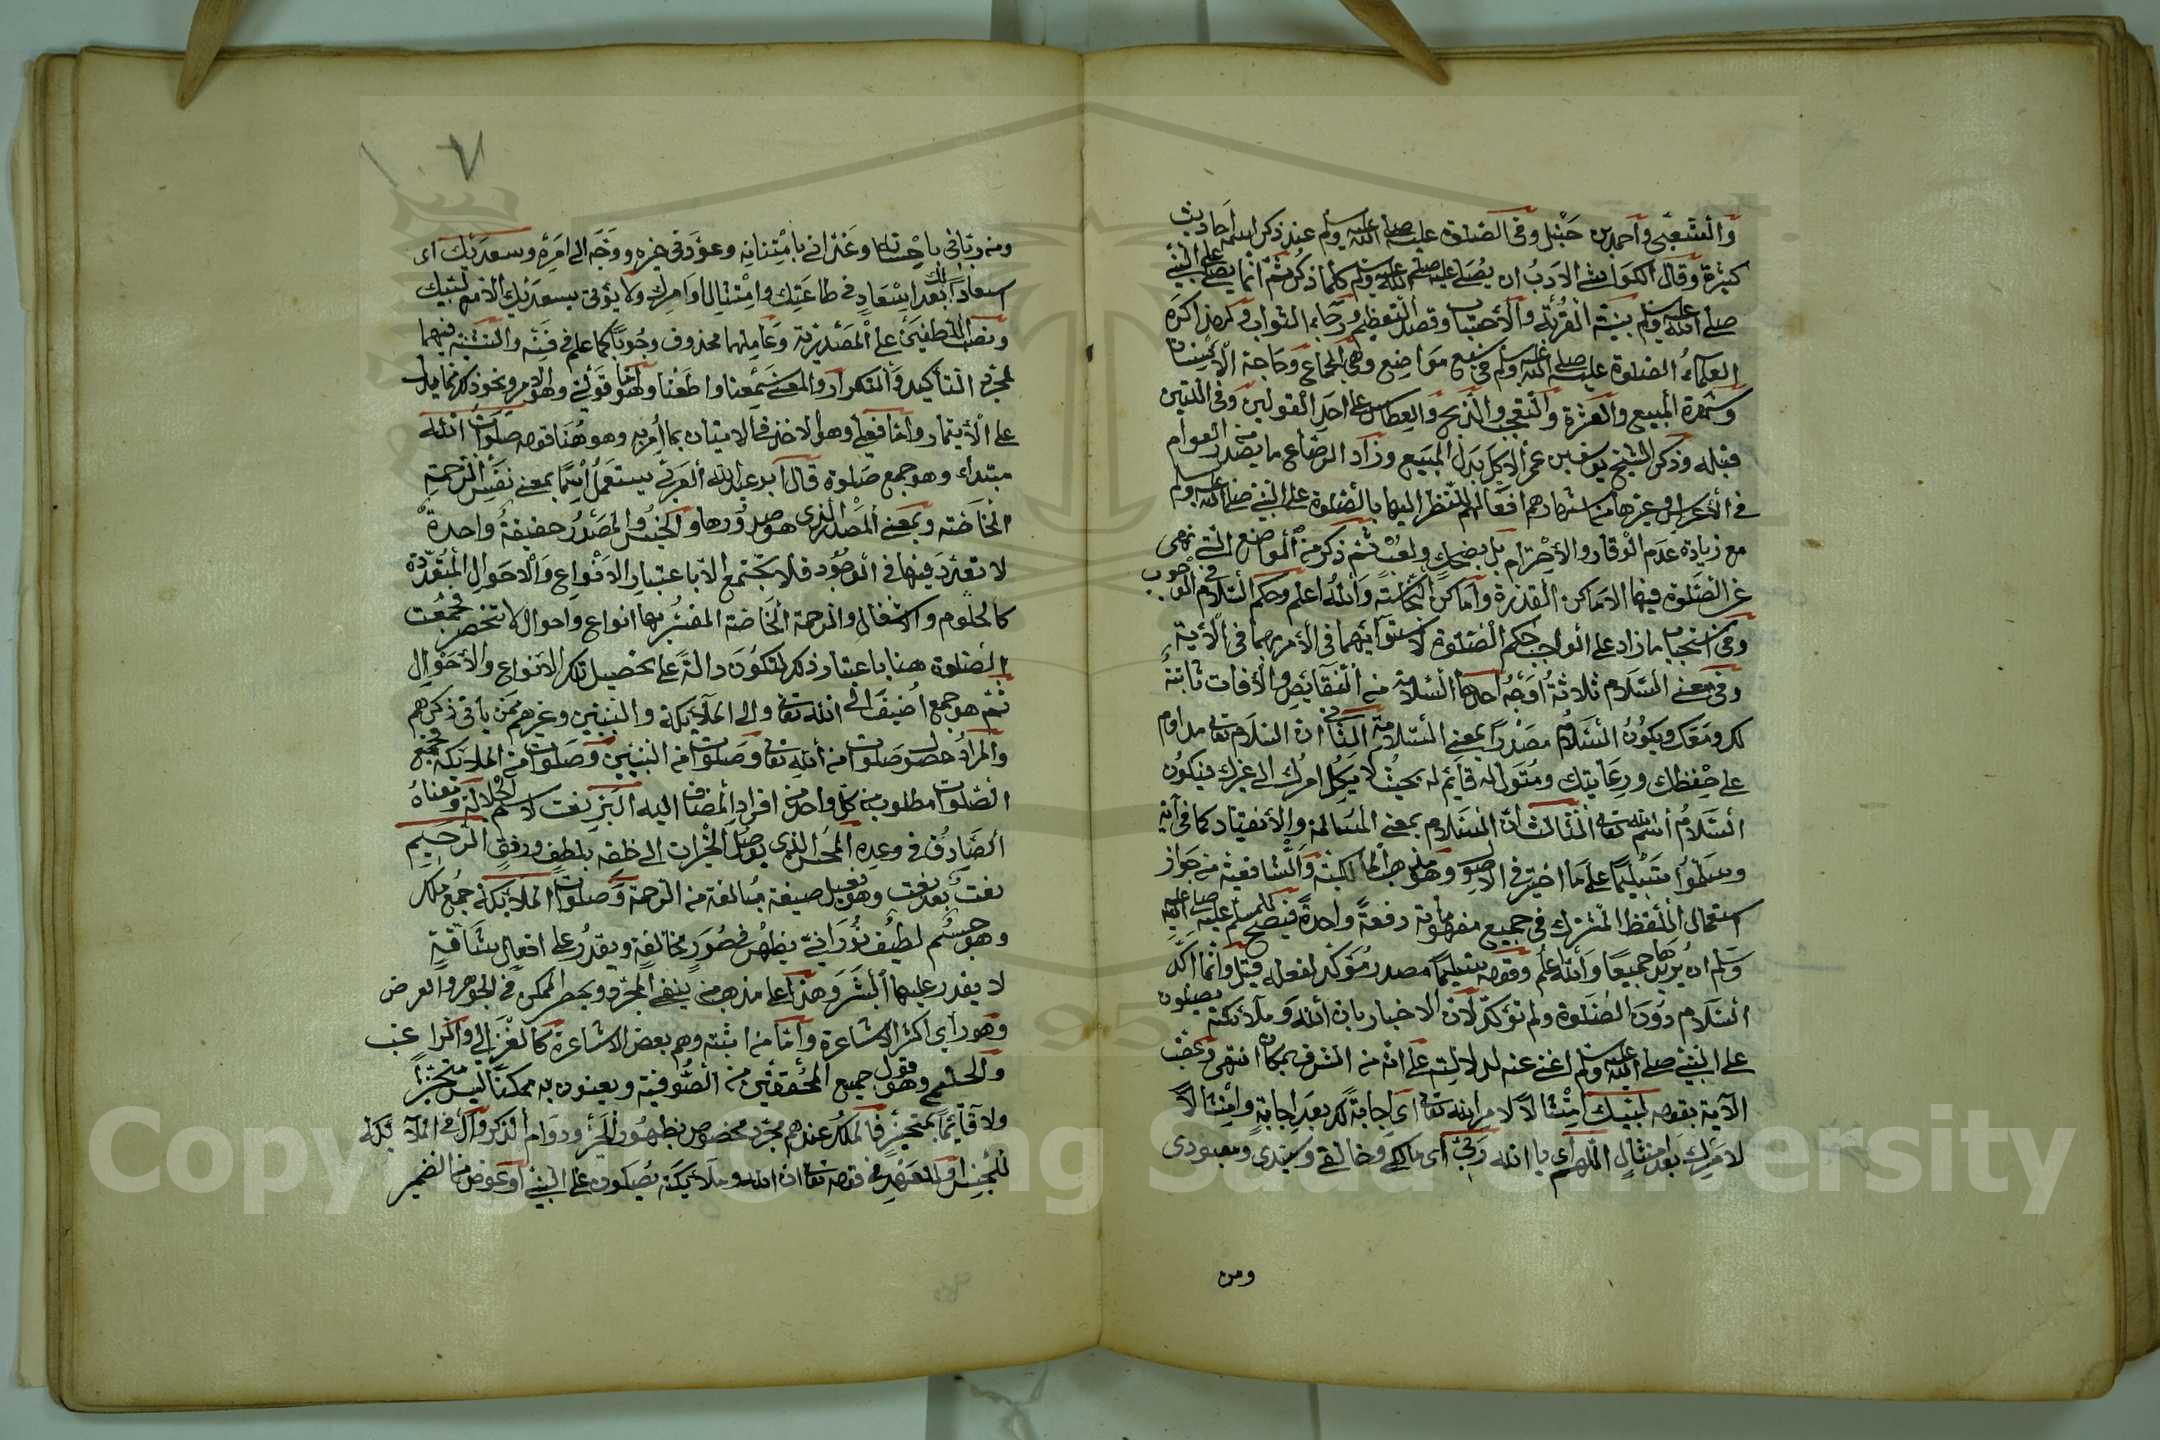 والشعبي واحمد بن حنبل وفي الصلوة عليه صلى الله عليه وسلم عند ذكر اسمه احاديث
كثيرة وقال الكواشي الادب ان يصلي عليه صلى الله عليه وسلم كلما ذكر ثم انما يصلي على النبي
صلى الله عليه وسلم بنية القربة والاحتساب وقصد التعظيم ورجاء الثواب وكره ذاكره
العلماء الصلوة عليه صلى الله عليه وسلم في سبع مواضع وهي الجماع وحاجة الانسان
وشهرة المبيع والعثرة والتعجب والذبح والعطاس على احد القولين وفي اللتين
قبله وذكر الشيخ يوسف بن عمر الاكل بدل المبيع وزاد الرصاع ما يصدر من العوام
في الاعراس وغيرها من اشهارهم افعالهم للنظر اليها بالصلوة على النبي صلى الله عليه وسلم
مع زيادة عدم الوقار والاحترام بل بضحك ولعب ثم ذكر من المواضع التي نهى
عن الصلوة فيها الاماكن القذرة واماكن النجاسة والله اعلم وحكم السلام في الوجوب
وفي استحباب ما زاد على الواجب حكم الصلوة لاستوائهما في الامر بهما في الآية
وفي معنى السلام ثلاثة اوجه احدها السلامة من النقايص والآفات ثابتة
لك ومعك ويكون السلام مصدرا بمعنى السلامة الثاني ان السلام تعالى مداوم
على حفظك ورعايتك ومتول له قايم له بحيث لا يكل امرك الى غيرك فيكون
السلام اسم الله تعالى الثالث ان السلام بمعنى المسالمة والانقياد كما في آية
وسلموا تسليما على ما اختير في الاصول وهو مذهب المالكية والشافعية من جواز
استعمال اللفظ المشترك في جميع مفهوماته دفعة واحدة فيصح لمسلم عليه صلى الله عليه
وسلم ان يريدها جميعا والله اعلم وقوله تسليما مصدر مؤكد لفعله قيل وانما اكد
السلام دون الصلوة ولم تؤكد لان الاخبار بان الله وملائكته يصلون
على النبي صلى الله عليه وسلم اغنى عنه لدلالته على انه من الشرف بمكان انتهى وعقب
الآية بقوله لبيك امتثالا لامر الله تعالى اي اجابة لك بعد اجابة وامتثالا
لامرك بعد امتثال اللهم اي يا الله ربي اي مالكي وخالقي وسيدي ومعبودي
ومن
٧
ومن رباني باحسانه وغذاني بامتنانه وعودني خيره ووجه الى امره وسعديك اي
اسعادا لك بعد اسعاد في طاعتك وامتثال اوامرك ولا يؤتى بسعديك الا مع لبيك
ونصب اللفظين على المصدرية وعاملهما محذوف وجوبا كما علم في فنه والتثنية فيهما
لمجرد التأكيد والتكرار والمعنى سمعنا واطعنا وهو اما قولي وهو الامر ونحو ذكر مما يدل
على الايتمار واما فعلي وهو الاخذ في الاتيان بما امر به وهو هنا قوله صلوات الله
مبتدا وهو جمع صلوة قال ابو عبد الله العربي يستعمل اسما بمعنى نفس الرحمة
الخاصة وبمعنى المصدر الذي هو صدورها والجنس والمصدر حقيقة واحدة
لا تعدد فيها في الوجود فلا يجتمع الا باعتبار الانواع والاحوال المتعددة
كالحلوم والاشغال والرحمة الخاصة المفسر بها انواع واحوال لا تنحصر فجمعت
الصلوة هنا باعتبار ذلك لتكون دالة على تحصيل تلك الانواع والاحوال
ثم هو جمع اضيف الى الله تعالى والى الملائكة والنبيين وغيرهم ممن يأتي ذكرهم
والمراد حصول صلوات من الله تعالى وصلوات من النبيين وصلوات من الملائكة فجمع
الصلوات مطلوب من كل واحد من افراد المضاف اليه البر نعت لاسم الجلالة ومعناه
الصادق في وعده المحسن الذي يوصل الخيرات الى خلقه بلطف ورفق الرحيم
نعت بعد نعت وهو فعيل صيغة مبالغة من الرحمة وصلوات الملائكة جمع ملك
وهو جسم لطيف نوراني يظهر في صور مختلفة ويقدر على افعال شاقة
لا يقدر عليها البشر وهذا على مذهب من ينفي المجرد ويحصر الممكن في الجوهر والعرض
وهو رأي اكثر الاشاعرة واما من اثبته وهم بعض الاشاعرة كالغزالي والراغب
والحليمي وهو قول جميع المحققين من الصوفية ويعنون به ممكنا ليس متحيزا
ولا قائما بمتحيز فالملك عندهم مجرد مخصوص بظهور الخير ودوام الذكر وال في الملائكة
للجنس او للعهد في قوله تعالى ان الله وملائكته يصلون على النبي او عوض من الضمير
Copyright © King Saud University